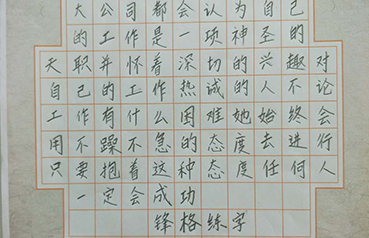 大公司都会认为自己
的工作是一项神圣的
天职并怀着深切的兴趣对
自己的工作热诚的人不论
工作有什么困难她始终会
用不躁不急的态度去进行
只要抱着这种态度任何人
一定会成功
锋格练字